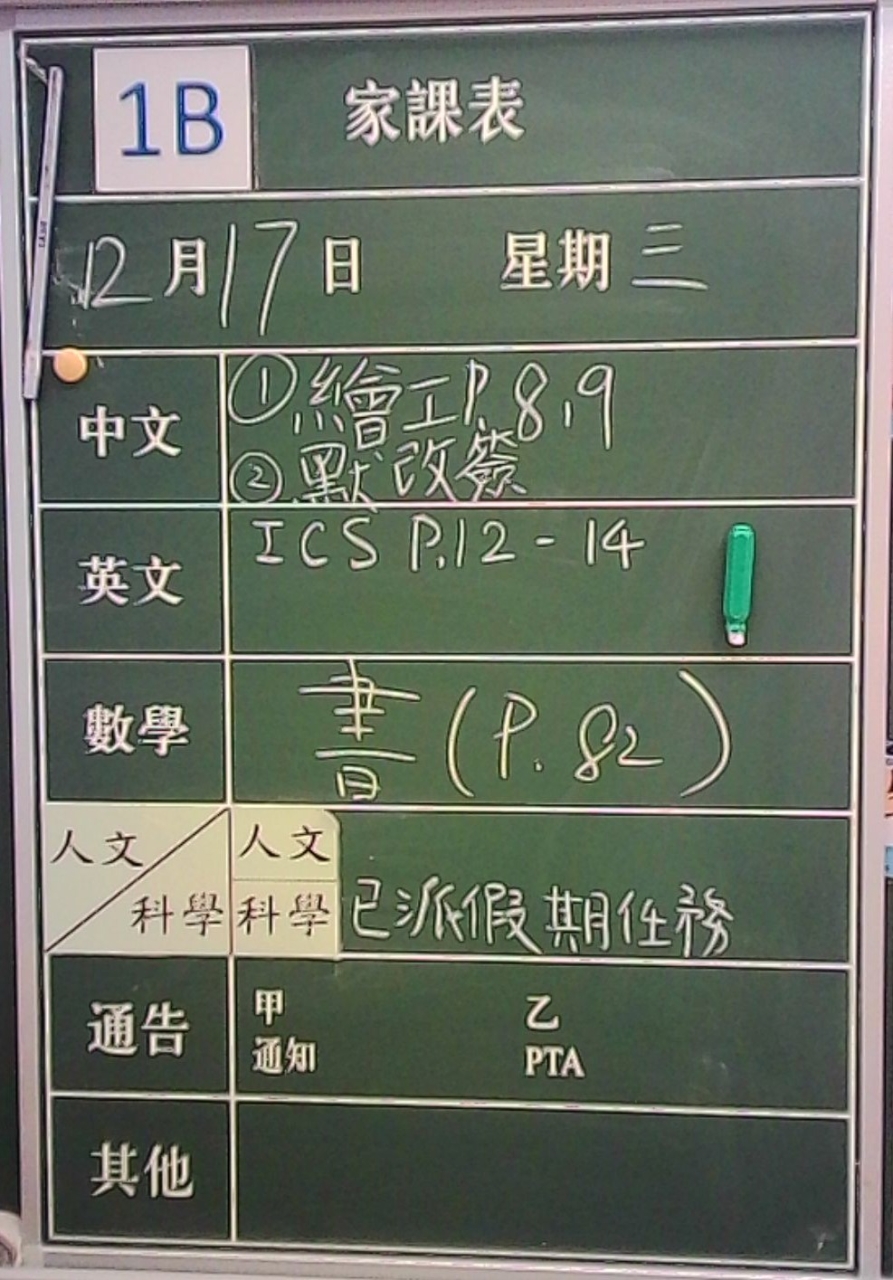 1B 家課表
12月17日 星期三
中文 ①繪工P.8,9
②默改簽
英文 ICS P.12-14
數學 書(P.82)
人文
科學
人文
科學 已派假期任務
通告 甲 乙
通知 PTA
其他